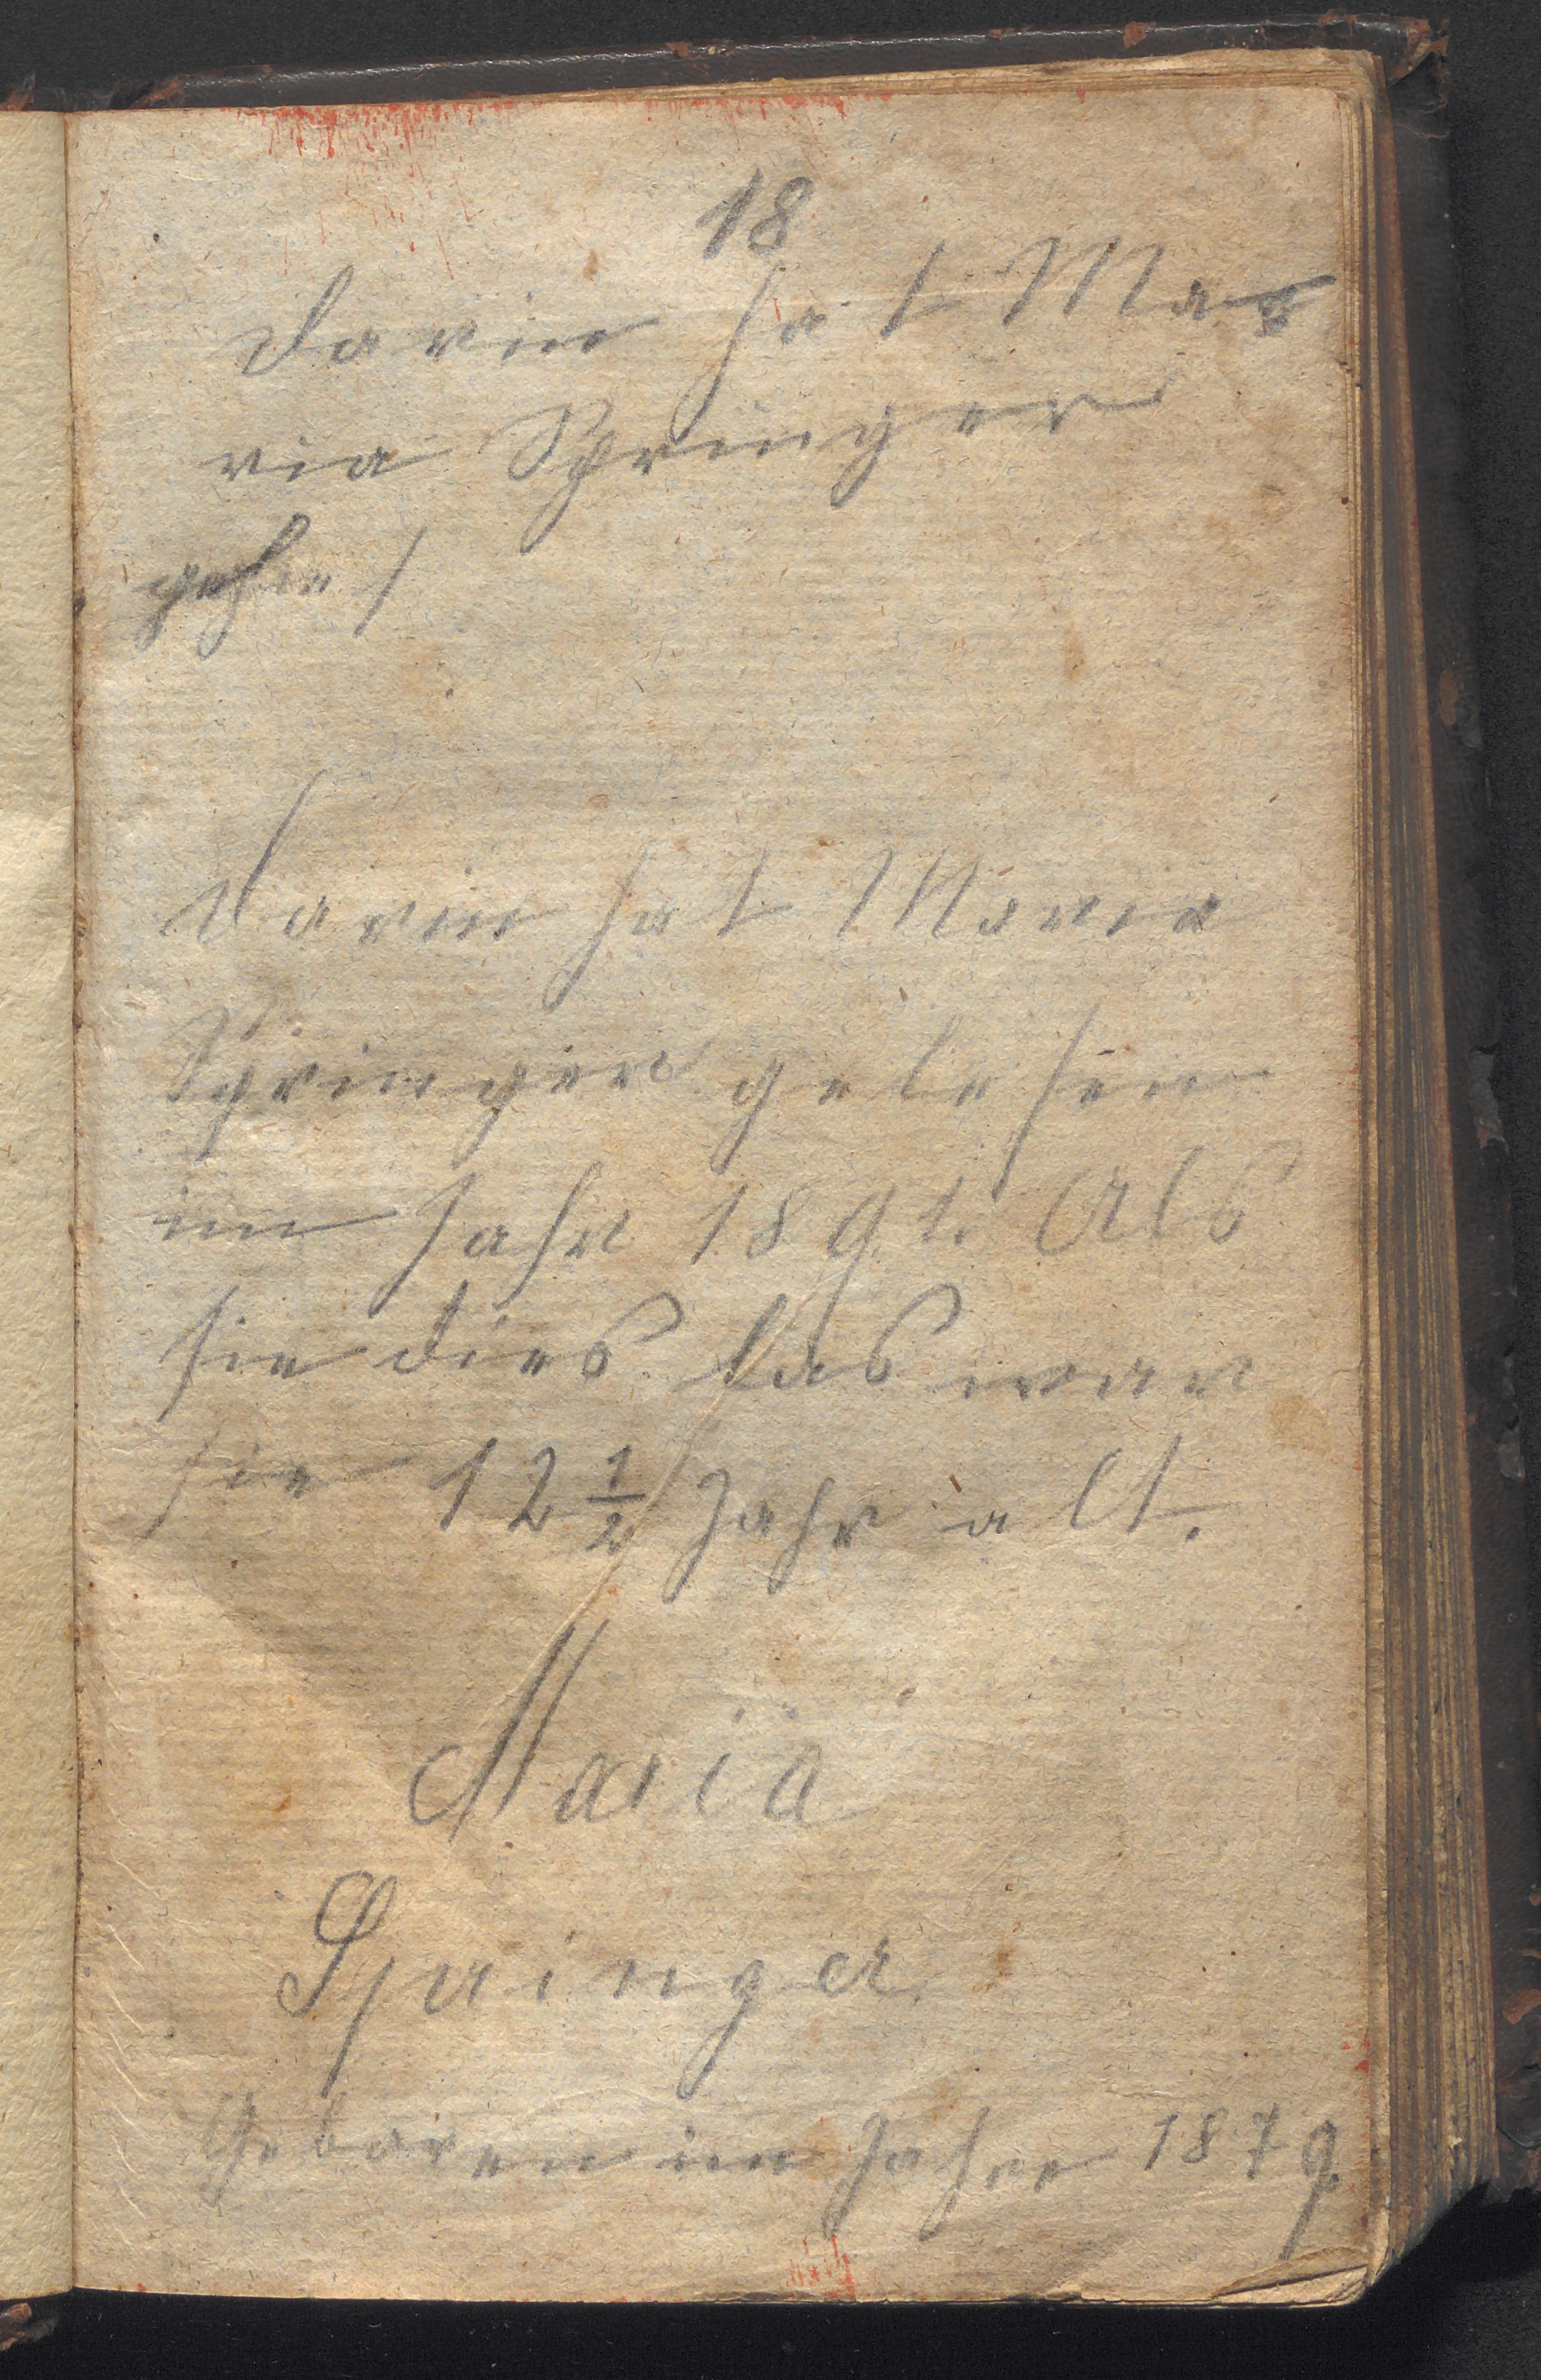 18
Darin hat Ma-
ria Springer
Darin hat Maria
Springer gelesen
im Jahr 1891. Als
sie dies las war
sie 12 1/2 Jahr alt.
Maria
Springer.
Geboren im Jahre 1879.